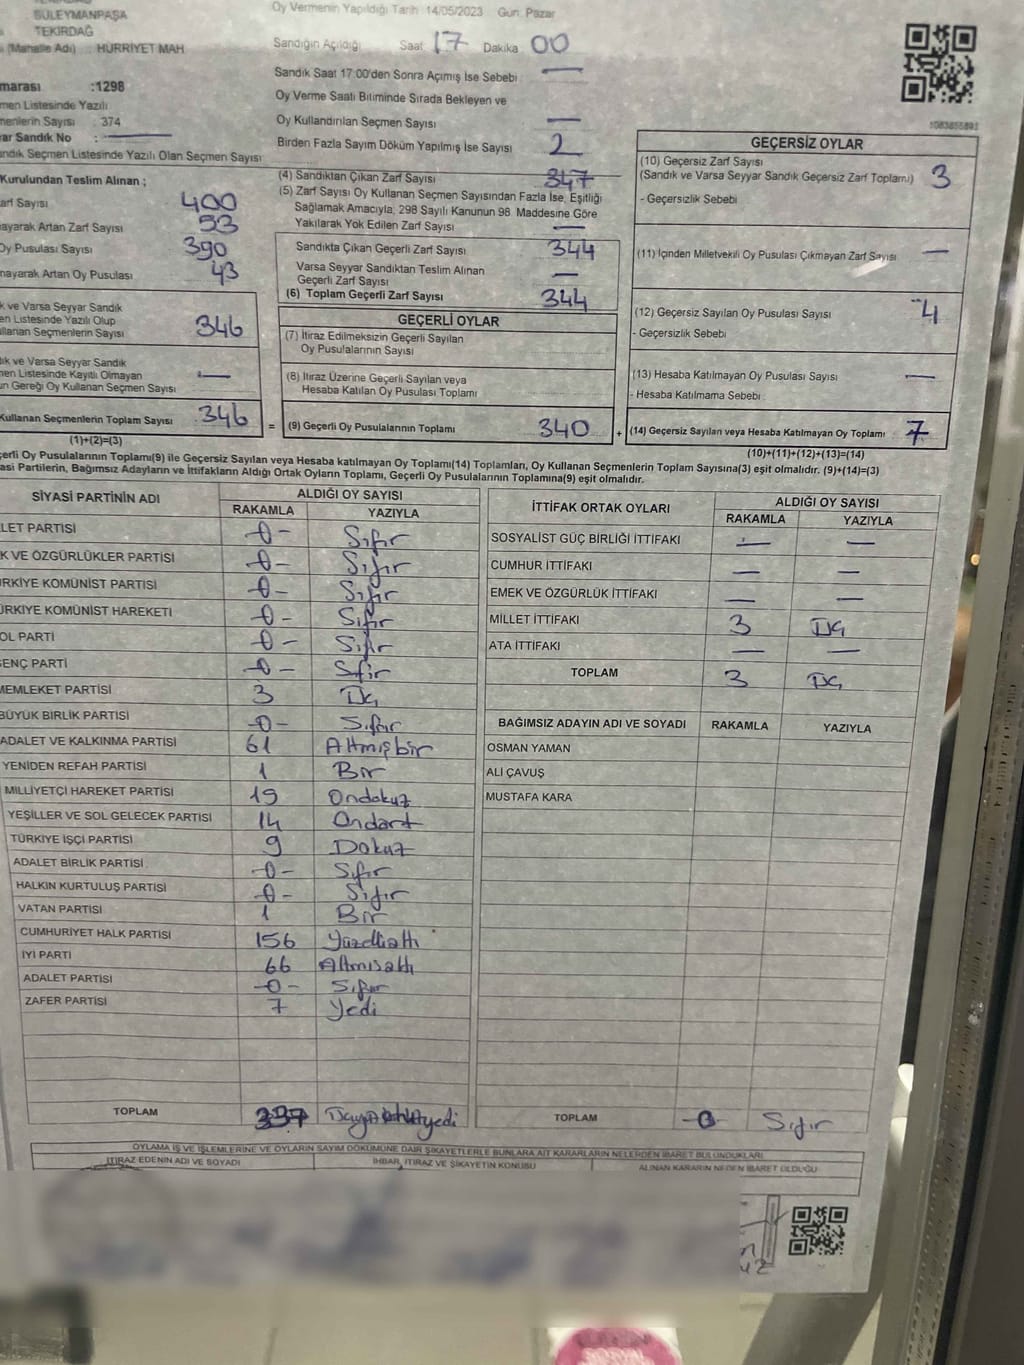 SÜLEYMANPAŞA
TEKİRDAĞ
(Mahalle Adı) : HÜRRİYET MAH
marası :1298
men Listesinde Yazılı
menlerin Sayısı : 374
ar Sandık No : —
andık Seçmen Listesinde Yazılı Olan Seçmen Sayısı
Oy Vermenin Yapıldığı Tarih : 14/05/2023 Gün: Pazar
Sandığın Açıldığı Saat 17 Dakika 00
Sandık Saat 17:00'den Sonra Açımış İse Sebebi —
Oy Verme Saati Bitiminde Sırada Bekleyen ve
Oy Kullandırılan Seçmen Sayısı —
Birden Fazla Sayım Döküm Yapılmış İse Sayısı 2
1083855892
Kurulundan Teslim Alınan ;
arf Sayısı 400
ayarak Artan Zarf Sayısı 53
Oy Pusulası Sayısı 390
nayarak Artan Oy Pusulası 43
k ve Varsa Seyyar Sandık
en Listesinde Yazılı Olup
llanan Seçmenlerin Sayısı 346
dık ve Varsa Seyyar Sandık
men Listesinde Kayıtlı Olmayan
un Gereği Oy Kullanan Seçmen Sayısı —
Kullanan Seçmenlerin Toplam Sayısı 346
(1)+(2)=(3)
(4) Sandıktan Çıkan Zarf Sayısı 347
(5) Zarf Sayısı Oy Kullanan Seçmen Sayısından Fazla İse, Eşitliği
Sağlamak Amacıyla, 298 Sayılı Kanunun 98. Maddesine Göre
Yakılarak Yok Edilen Zarf Sayısı —
Sandıkta Çıkan Geçerli Zarf Sayısı 344
Varsa Seyyar Sandıktan Teslim Alınan
Geçerli Zarf Sayısı —
(6) Toplam Geçerli Zarf Sayısı 344
GEÇERLİ OYLAR
(7) İtiraz Edilmeksizin Geçerli Sayılan
Oy Pusulalarının Sayısı
(8) İtiraz Üzerine Geçerli Sayılan veya
Hesaba Katılan Oy Pusulası Toplamı
= (9) Geçerli Oy Pusulalarının Toplamı 340
GEÇERSİZ OYLAR
(10) Geçersiz Zarf Sayısı
(Sandık ve Varsa Seyyar Sandık Geçersiz Zarf Toplamı) 3
- Geçersizlik Sebebi
(11) İçinden Milletvekili Oy Pusulası Çıkmayan Zarf Sayısı —
(12) Geçersiz Sayılan Oy Pusulası Sayısı 4
- Geçersizlik Sebebi
(13) Hesaba Katılmayan Oy Pusulası Sayısı —
- Hesaba Katılmama Sebebi
+ (14) Geçersiz Sayılan veya Hesaba Katılmayan Oy Toplamı 7
(10)+(11)+(12)+(13)=(14)
çerli Oy Pusulalarının Toplamı(9) ile Geçersiz Sayılan veya Hesaba katılmayan Oy Toplamı(14) Toplamları, Oy Kullanan Seçmenlerin Toplam Sayısına(3) eşit olmalıdır. (9)+(14)=(3)
asi Partilerin, Bağımsız Adayların ve İttifakların Aldığı Ortak Oyların Toplamı, Geçerli Oy Pusulalarının Toplamına(9) eşit olmalıdır.
SİYASİ PARTİNİN ADI ALDIĞI OY SAYISI
RAKAMLA YAZIYLA
LET PARTİSİ -0- Sıfır
K VE ÖZGÜRLÜKLER PARTİSİ -0- Sıfır
RKİYE KOMÜNİST PARTİSİ -0- Sıfır
ÜRKİYE KOMÜNİST HAREKETİ -0- Sıfır
OL PARTİ -0- Sıfır
ENÇ PARTİ -0- Sıfır
MEMLEKET PARTİSİ 3 Üç
BÜYÜK BİRLİK PARTİSİ -0- Sıfır
ADALET VE KALKINMA PARTİSİ 61 Altmışbir
YENİDEN REFAH PARTİSİ 1 Bir
MİLLİYETÇİ HAREKET PARTİSİ 19 Ondokuz
YEŞİLLER VE SOL GELECEK PARTİSİ 14 Ondört
TÜRKİYE İŞÇİ PARTİSİ 9 Dokuz
ADALET BİRLİK PARTİSİ -0- Sıfır
HALKIN KURTULUŞ PARTİSİ -0- Sıfır
VATAN PARTİSİ 1 Bir
CUMHURİYET HALK PARTİSİ 156 Yüzellialtı
İYİ PARTİ 66 Altmışaltı
ADALET PARTİSİ -0- Sıfır
ZAFER PARTİSİ 7 Yedi
TOPLAM 337
İTTİFAK ORTAK OYLARI ALDIĞI OY SAYISI
RAKAMLA YAZIYLA
SOSYALİST GÜÇ BİRLİĞİ İTTİFAKI — —
CUMHUR İTTİFAKI — —
EMEK VE ÖZGÜRLÜK İTTİFAKI — —
MİLLET İTTİFAKI 3 Üç
ATA İTTİFAKI — —
TOPLAM 3 Üç
BAĞIMSIZ ADAYIN ADI VE SOYADI RAKAMLA YAZIYLA
OSMAN YAMAN
ALİ ÇAVUŞ
MUSTAFA KARA
TOPLAM -0 Sıfır
OYLAMA İŞ VE İŞLEMLERİNE VE OYLARIN SAYIM DÖKÜMÜNE DAİR ŞİKAYETLERLE BUNLARA AİT KARARLARIN NELERDEN İBARET BULUNDUKLARI
İTİRAZ EDENİN ADI VE SOYADI İHBAR, İTİRAZ VE ŞİKAYETİN KONUSU ALINAN KARARIN NEDEN İBARET OLDUĞU